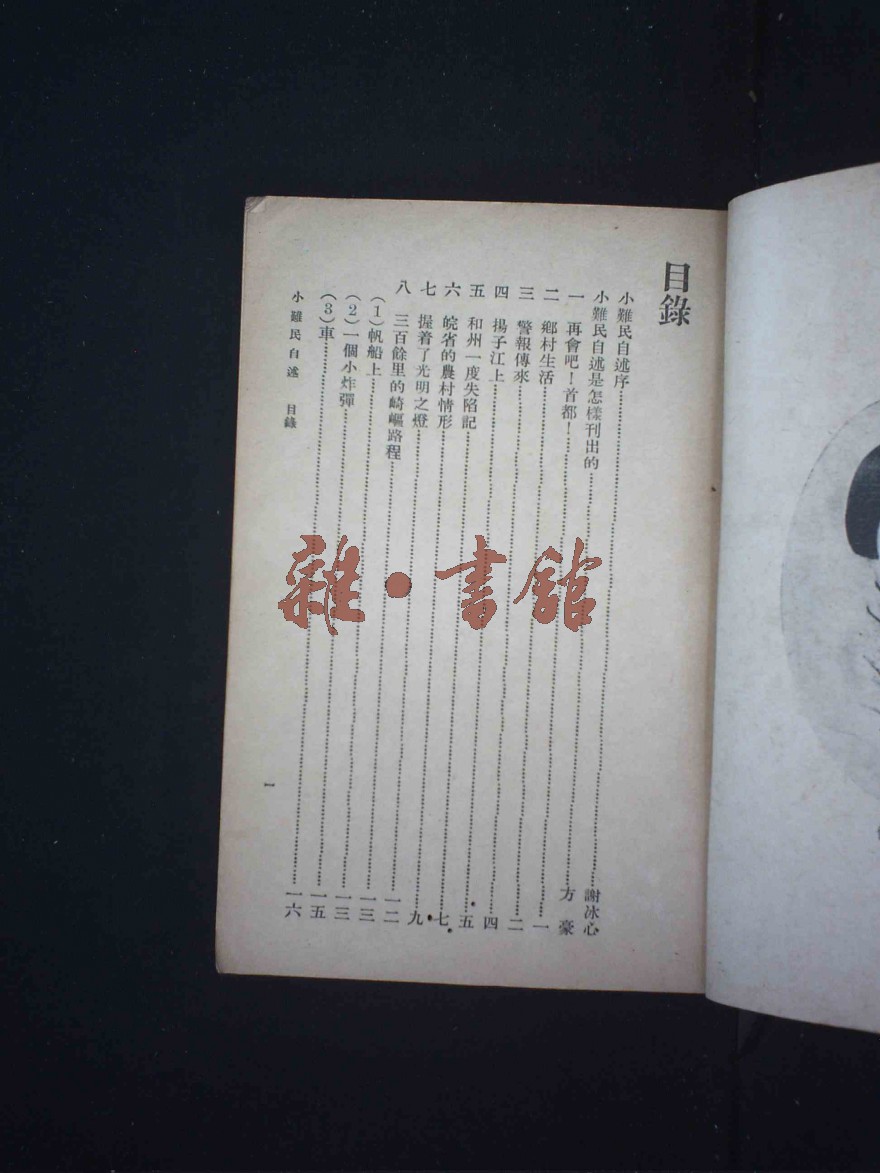 目錄
小難民自述序……謝冰心
小難民自述是怎樣刊出的……方豪
一 再會吧！首都！……一
二 鄉村生活……二
三 警報傳來……四
四 揚子江上……五
五 和州一度失陷記……七
六 皖省的農村情形……九
七 握着了光明之燈……一二
八 三百餘里的崎嶇路程……一三
（1）帆船上……一三
（2）一個小炸彈……一五
（3）車……一六
小難民自述 目錄
一
雜·書館